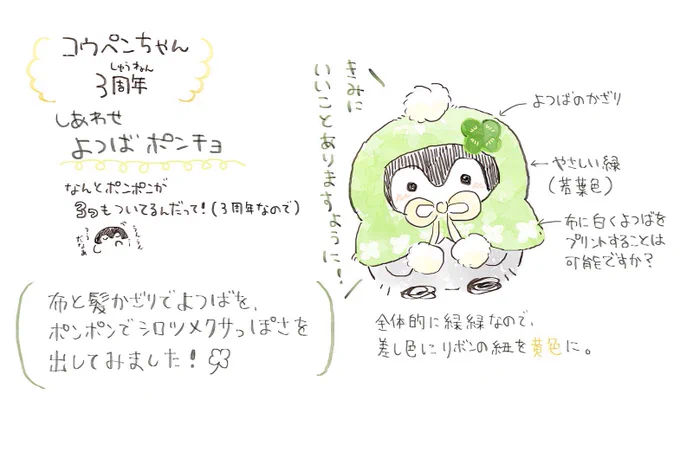 コウペンちゃん
しゅうねん
3周年
しあわせ
よつばポンチョ
なんとポンポンが
3つもついてるんだって!(3周年なので)
布と髪かざりでよつばを、
ポンポンでシロツメクサっぽさを
出してみました!
きみに
いいことありますように!
よつばのかざり
やさしい緑
(若葉色)
布に白くよつばを
プリントすることは
可能ですか?
全体的に緑緑なので、
差し色にリボンの紐を黄色に。